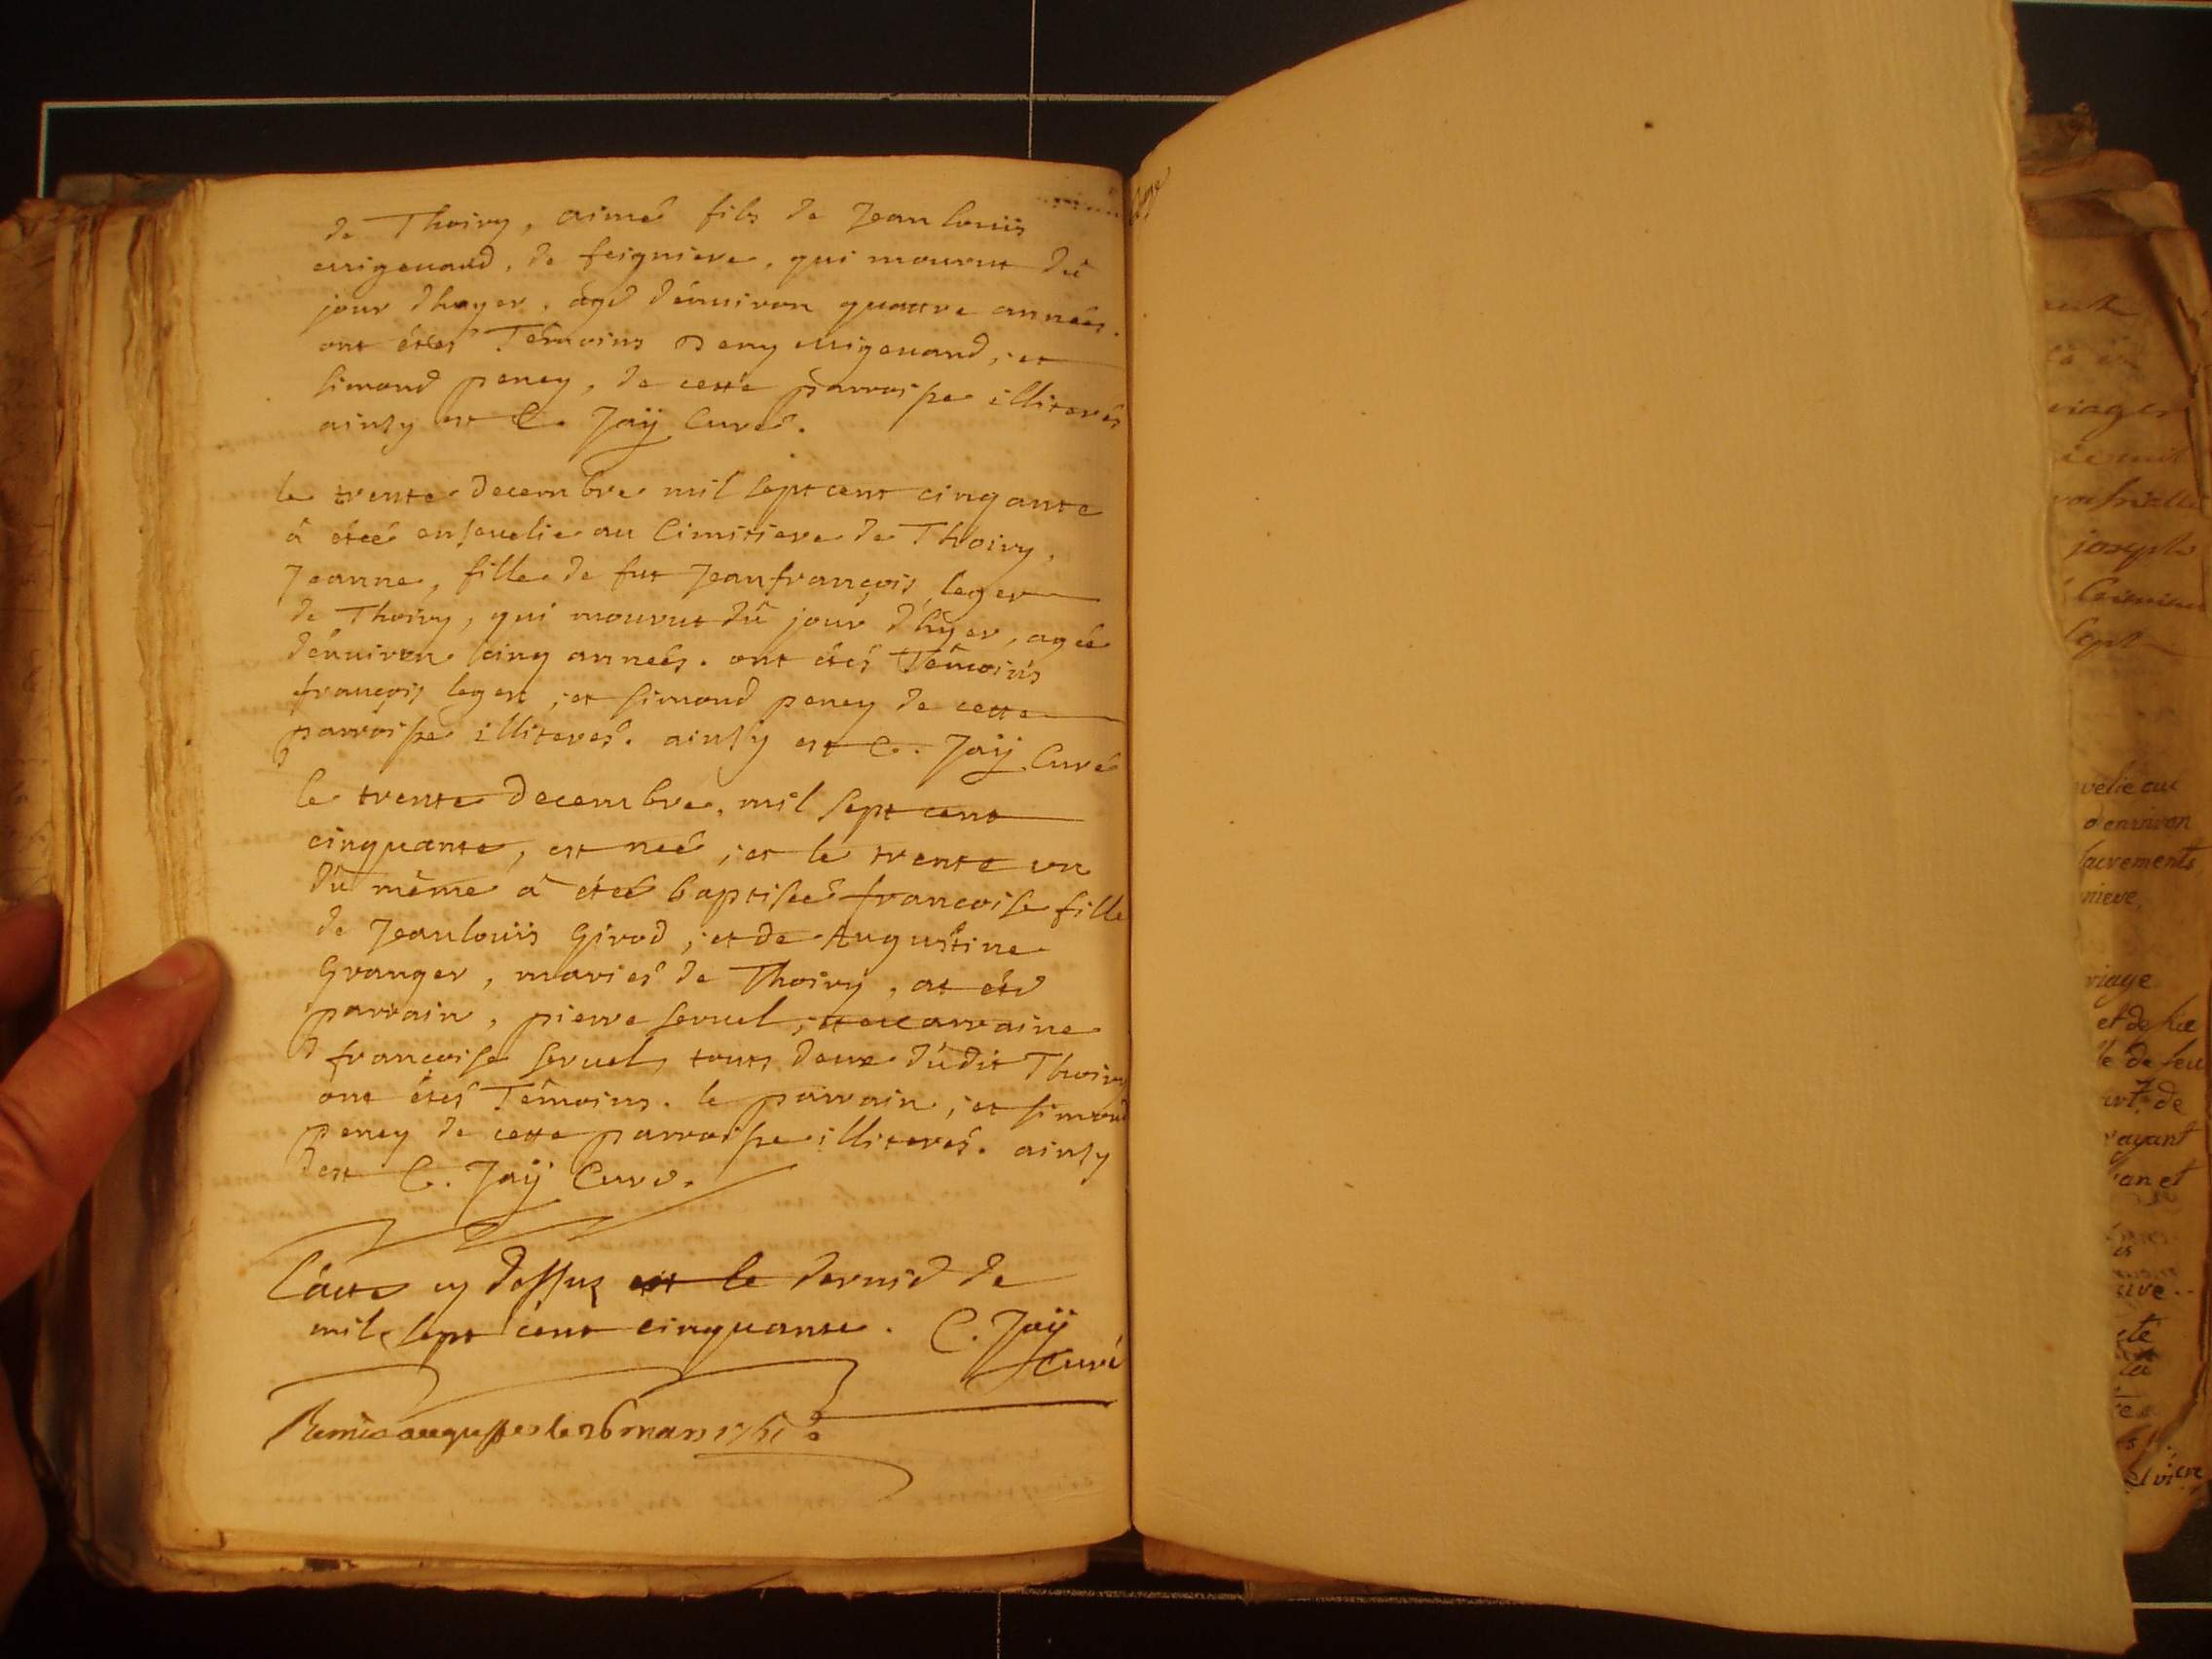 de Thoiry, aimé fils de Jean louis
migenand, de feigniere, qui mourut dû
jour dhyer, âgé dénuiron quattre années.
ont étés Témoins Deny migenand, et
simond peney, de cette parroisse illiterés
ainsy est C. Jaÿ Curé.
le trente decembre mil sept cent cinqante
à étée enseuelie au Cimitiere de Thoiry,
Jeanne, fille de fut Jeanfrançois leger
de Thoiry, qui mourut dû jour dhyer, agée
dénuiron cinq années. ont étés Témoins
françois leger, et simond peney de cette
parroisse illiterés. ainsy est C. Jaÿ Curé
le trente decembre, mil sept cent
cinquante, est neé, et le trente un
dû même à étée baptisée francoise fille
de Jeanlouis Girod, et de Augustine
Granger, mariés de Thoiry, at été
parrain, pierre seruel, et marraine
françoise seruel, touts deux dûdit Thoiry
ont étés Témoins. le parrain, et simond
peney de cette parroisse illiterés. ainsy
est C. Jaÿ Curé.
L'acte cy dessus est le dernié de
mil sept cent cinquante. C. Jaÿ
Curé
Remis au greffe le 26 mars 1751
veüe au
d'environ
sacrements
niere,
riage
le de feu
ayant
an et
joseph